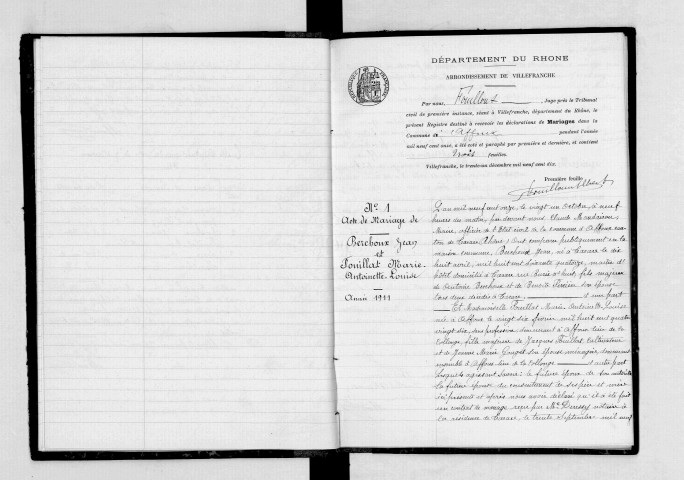 DÉPARTEMENT DU RHONE
ARRONDISSEMENT DE VILLEFRANCHE
Par nous, Fouilloux, Juge près le Tribunal
civil de première instance, séant à Villefranche, département du Rhône, le
présent Registre destiné à recevoir les déclarations de Mariages dans la
Commune d'Affoux pendant l'année
mil neuf cent onze, a été coté et paraphé par première et dernière, et contient
trois feuilles.
Villefranche, le trente-un décembre mil neuf cent dix.
Première feuille
N° 1
Acte de Mariage de
Berchoux Jean
et
Fouillat Marie-
Antoinette-Louise
Année 1911
L'an mil neuf cent onze, le vingt un octobre, à neuf
heures du matin, par devant nous Claude
Maire, officier de l'Etat civil de la commune d'Affoux can-
ton de Tarare (Rhône) Ont comparu publiquement en la
maison commune, Berchoux Jean, né à Tarare le dix
huit août, mil huit cent soixante quatorze, maître d'
hôtel domicilié à Tarare rue fils majeur
de Antoine Berchoux et de son épouse
tous deux décédés à Tarare, d'une part
Et Mademoiselle Fouillat Marie-Antoinette-Louise
née à Affoux le vingt six février mil huit cent quatre
vingt six, sans profession demeurant à Affoux lieu de la
Collonge, fille majeure de Jacques Fouillat cultivateur
et de Jeanne Marie son épouse ménagère demeurant
ensemble à Affoux lieu de la Collonge d'autre part
lesquels agissant savoir: le futur époux de son autorité
la future épouse du consentement de ses père et mère
ici présents et après nous avoir déclaré qu'il a été fait
un contrat de mariage reçu par Me notaire à
la résidence de Tarare, le trente Septembre mil neuf